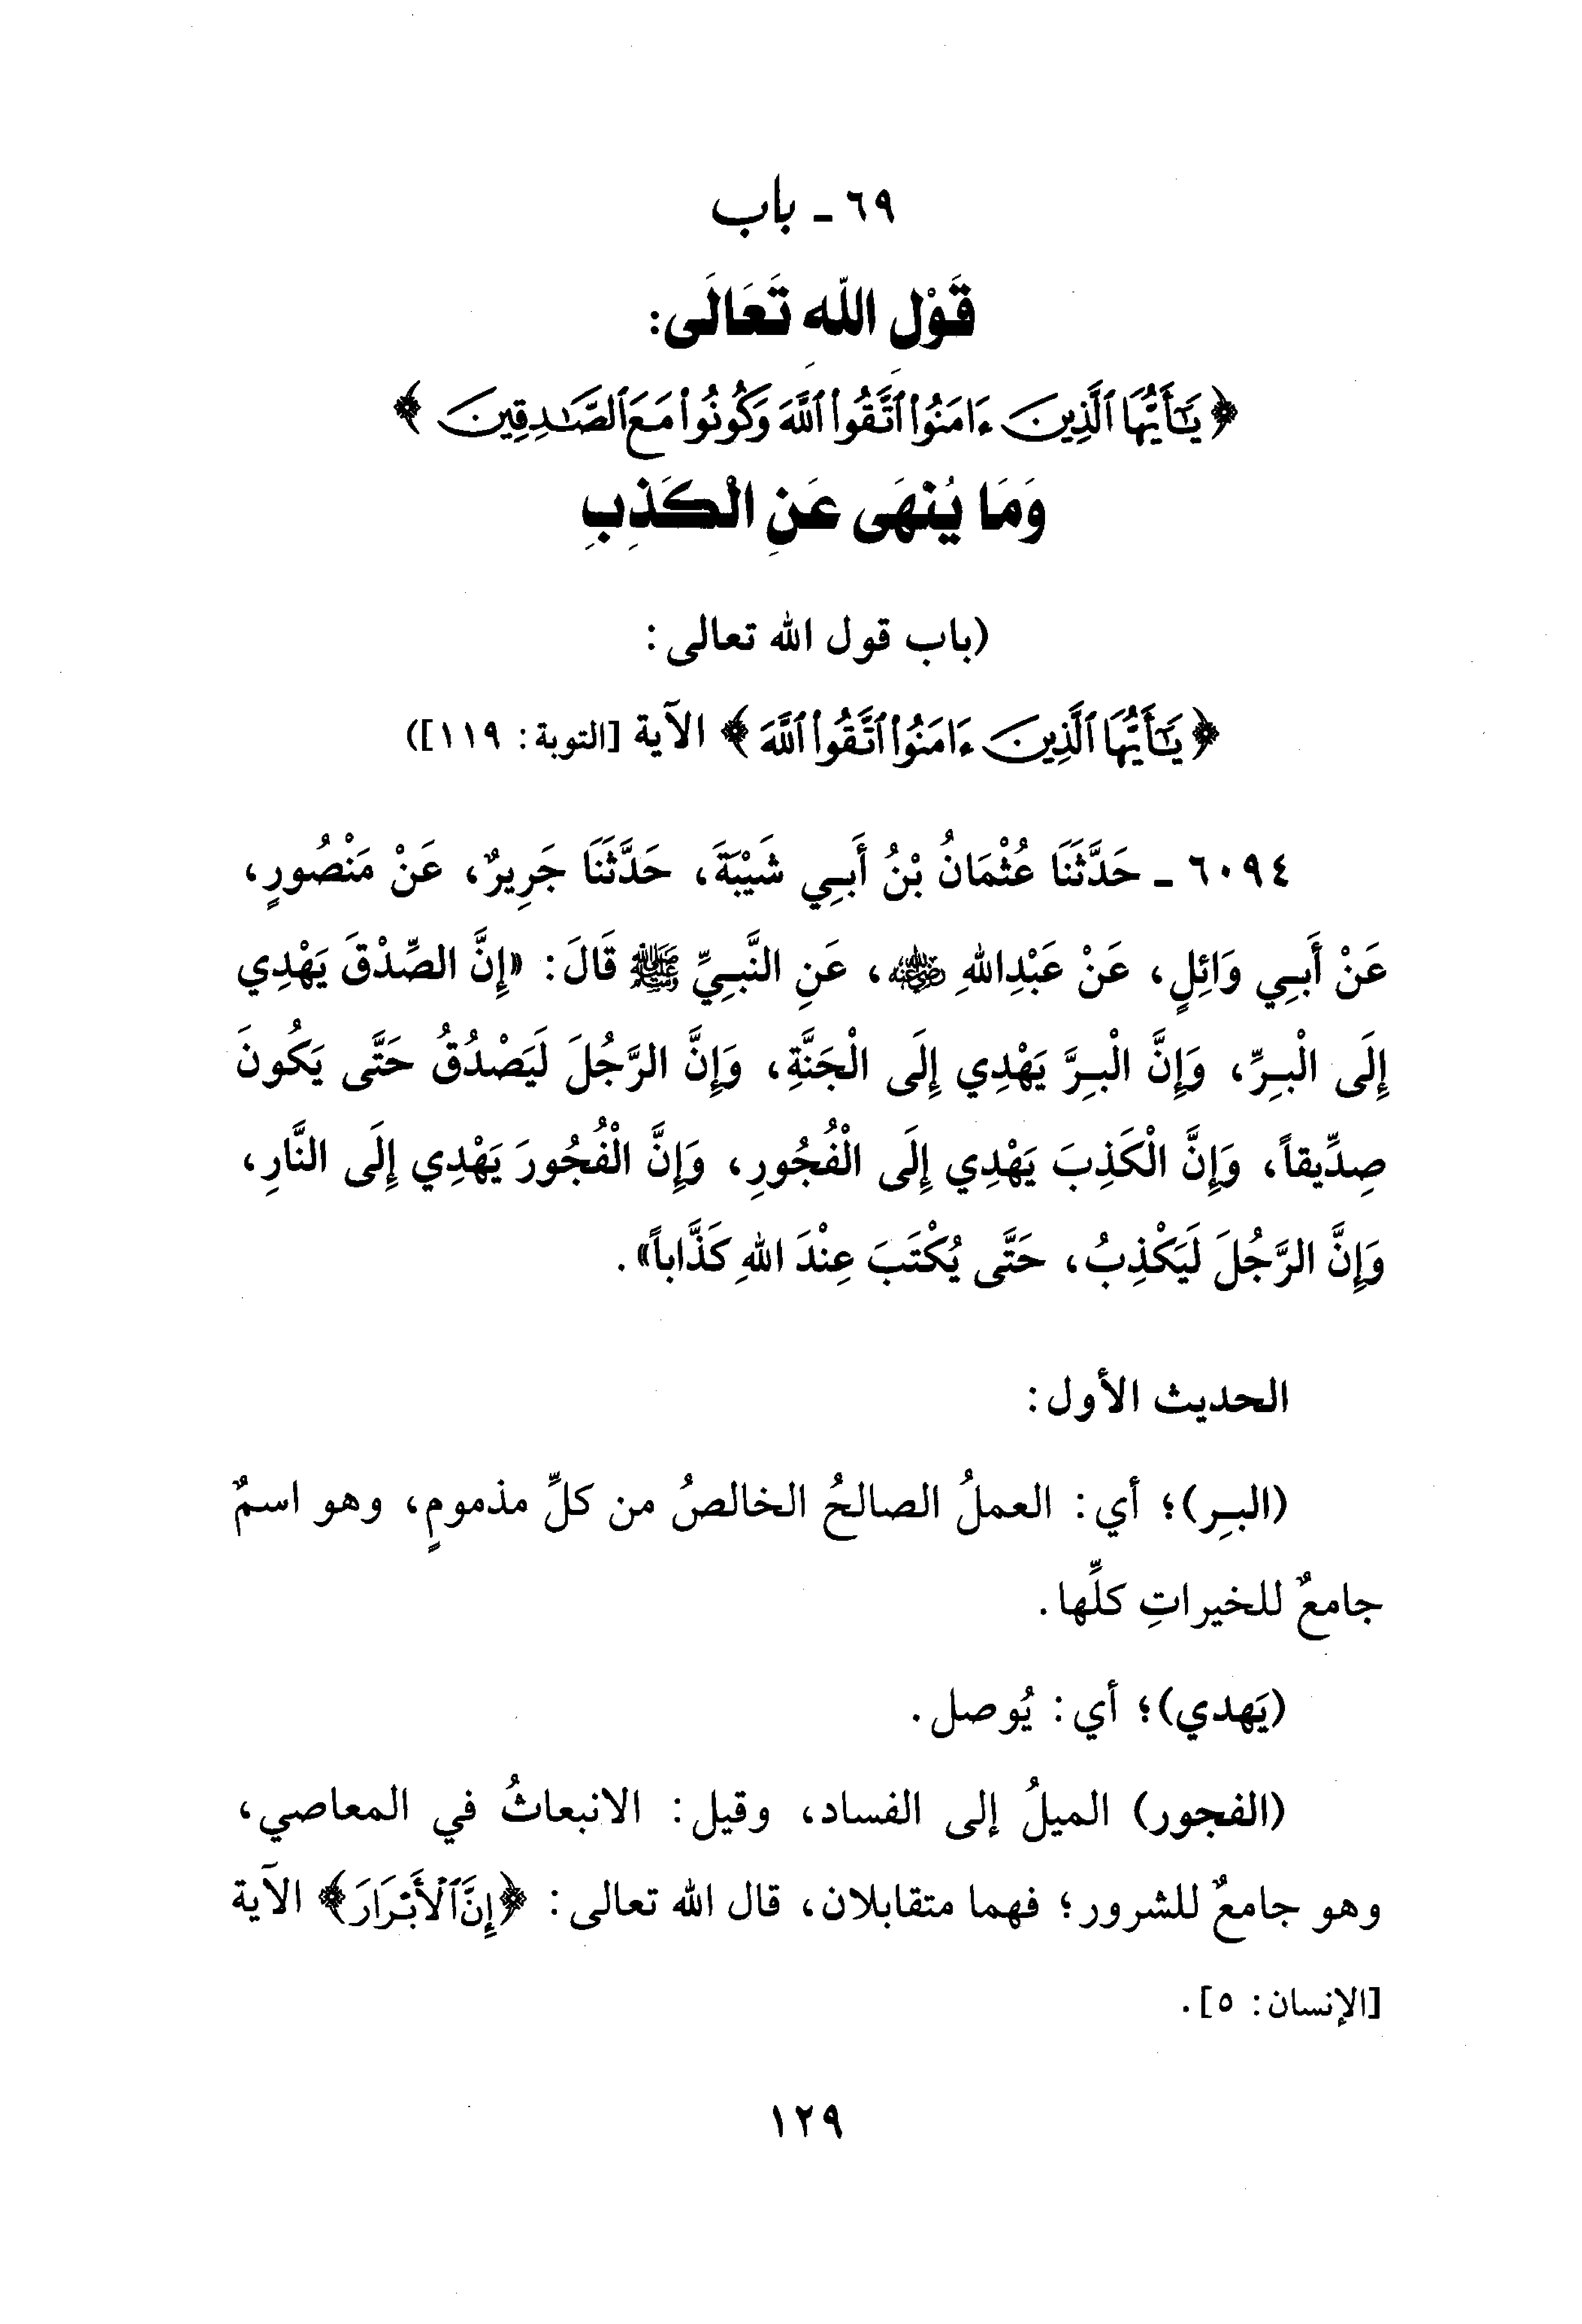 ٦٩ - باب
قَوْل الله تَعَالَى:
﴿يَٰٓأَيُّهَا ٱلَّذِينَ ءَامَنُوا۟ ٱتَّقُوا۟ ٱللَّهَ وَكُونُوا۟ مَعَ ٱلصَّٰدِقِينَ﴾
وَمَا يُنْهَى عَنِ الْكَذِبِ
(باب قول الله تعالى:
﴿يَٰٓأَيُّهَا ٱلَّذِينَ ءَامَنُوا۟ ٱتَّقُوا۟ ٱللَّهَ﴾ الآية [التوبة: ١١٩])
٦٠٩٤ - حَدَّثَنَا عُثْمَانُ بْنُ أَبِي شَيْبَةَ، حَدَّثَنَا جَرِيرٌ، عَنْ مَنْصُورٍ،
عَنْ أَبِي وَائِلٍ، عَنْ عَبْدِاللهِ رضي الله عنه، عَنِ النَّبِيِّ ﷺ قَالَ: «إِنَّ الصِّدْقَ يَهْدِي
إِلَى الْبِرِّ، وَإِنَّ الْبِرَّ يَهْدِي إِلَى الْجَنَّةِ، وَإِنَّ الرَّجُلَ لَيَصْدُقُ حَتَّى يَكُونَ
صِدِّيقاً، وَإِنَّ الْكَذِبَ يَهْدِي إِلَى الْفُجُورِ، وَإِنَّ الْفُجُورَ يَهْدِي إِلَى النَّارِ،
وَإِنَّ الرَّجُلَ لَيَكْذِبُ، حَتَّى يُكْتَبَ عِنْدَ اللهِ كَذَّاباً».
الحديث الأول:
(البِر)؛ أي: العملُ الصالحُ الخالصُ من كلِّ مذمومٍ، وهو اسمٌ
جامعٌ للخيراتِ كلِّها.
(يَهدي)؛ أي: يُوصل.
(الفجور) الميلُ إلى الفساد، وقيل: الانبعاثُ في المعاصي،
وهو جامعٌ للشرور؛ فهما متقابلان، قال الله تعالى: ﴿إِنَّ ٱلْأَبْرَارَ﴾ الآية
[الإنسان: ٥].
١٢٩